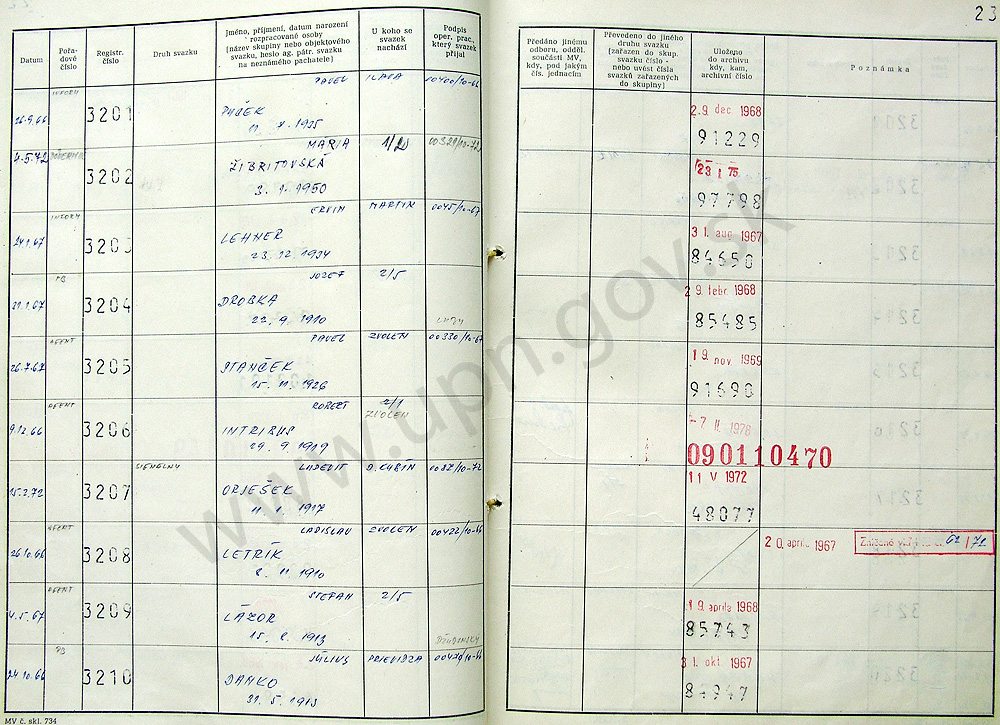 23
Datum
Pořa-
dové
číslo
Registr.
číslo
Druh svazku
Jméno, příjmení, datum narození
rozpracované osoby
(název skupiny nebo objektového
svazku, heslo ag. pátr. svazku
na neznámého pachatele)
U koho se
svazek
nachází
Podpis
oper. prac.,
který svazek
přijal
Předáno jinému
odboru, odděl.
součásti MV,
kdy, pod jakým
čís. jednacím
Převedeno do jiného
druhu svazku
(zařazen do skup.
svazku číslo -
nebo uvést čísla
svazků zařazených
do skupiny)
Uloženo
do archivu
kdy, kam,
archivní číslo
Poznámka
INFORM PAVEL ILAVA 00400/10-66
26.9.66 3201 PUŠEK 29. dec 1968
11. X. 1935 91229
MÁRIA 1/2
4.5.72 3202 ŽIBRITOVSKÁ 23 I 75
3. 1. 1950 97798
INFORM ERVIN MARTIN 0045/10-67
24.1.67 3203 LEHNER 31. aug. 1967
23. 12. 1934 84650
JOZEF 2/5
21.1.67 3204 DROBKA 29. febr. 1968
22. 9. 1910 85485
AGENT PAVEL ZVOLEN 00330/10-67
26.7.67 3205 STANČEK 19. nov 1969
15. 11. 1926 91690
AGENT ROBERT 2/1
ZVOLEN
9.12.66 3206 INTRIBUS -7 II. 1978
29. 9. 1919 090110470
SIGNÁLNY LUDEVIT D. KUBÍN 0082/10-72
15.2.72 3207 ORJEŠEK 11 V 1972
11. 1. 1917 48077
AGENT LADISLAV ZVOLEN 00422/10-66
26.10.66 3208 LETRÍK 20. apríla 1967 62/72
8. 11. 1910
AGENT ŠTEFAN 2/5
4.5.67 3209 LÁZOR 19. apríla 1968
15. 8. 1913 85743
PB JÚLIUS PRIEVIDZA
24.10.66 3210 DANKO 31. okt. 1967
31. 5. 1913 84947
MV č. skl. 734
www.upn.gov.sk